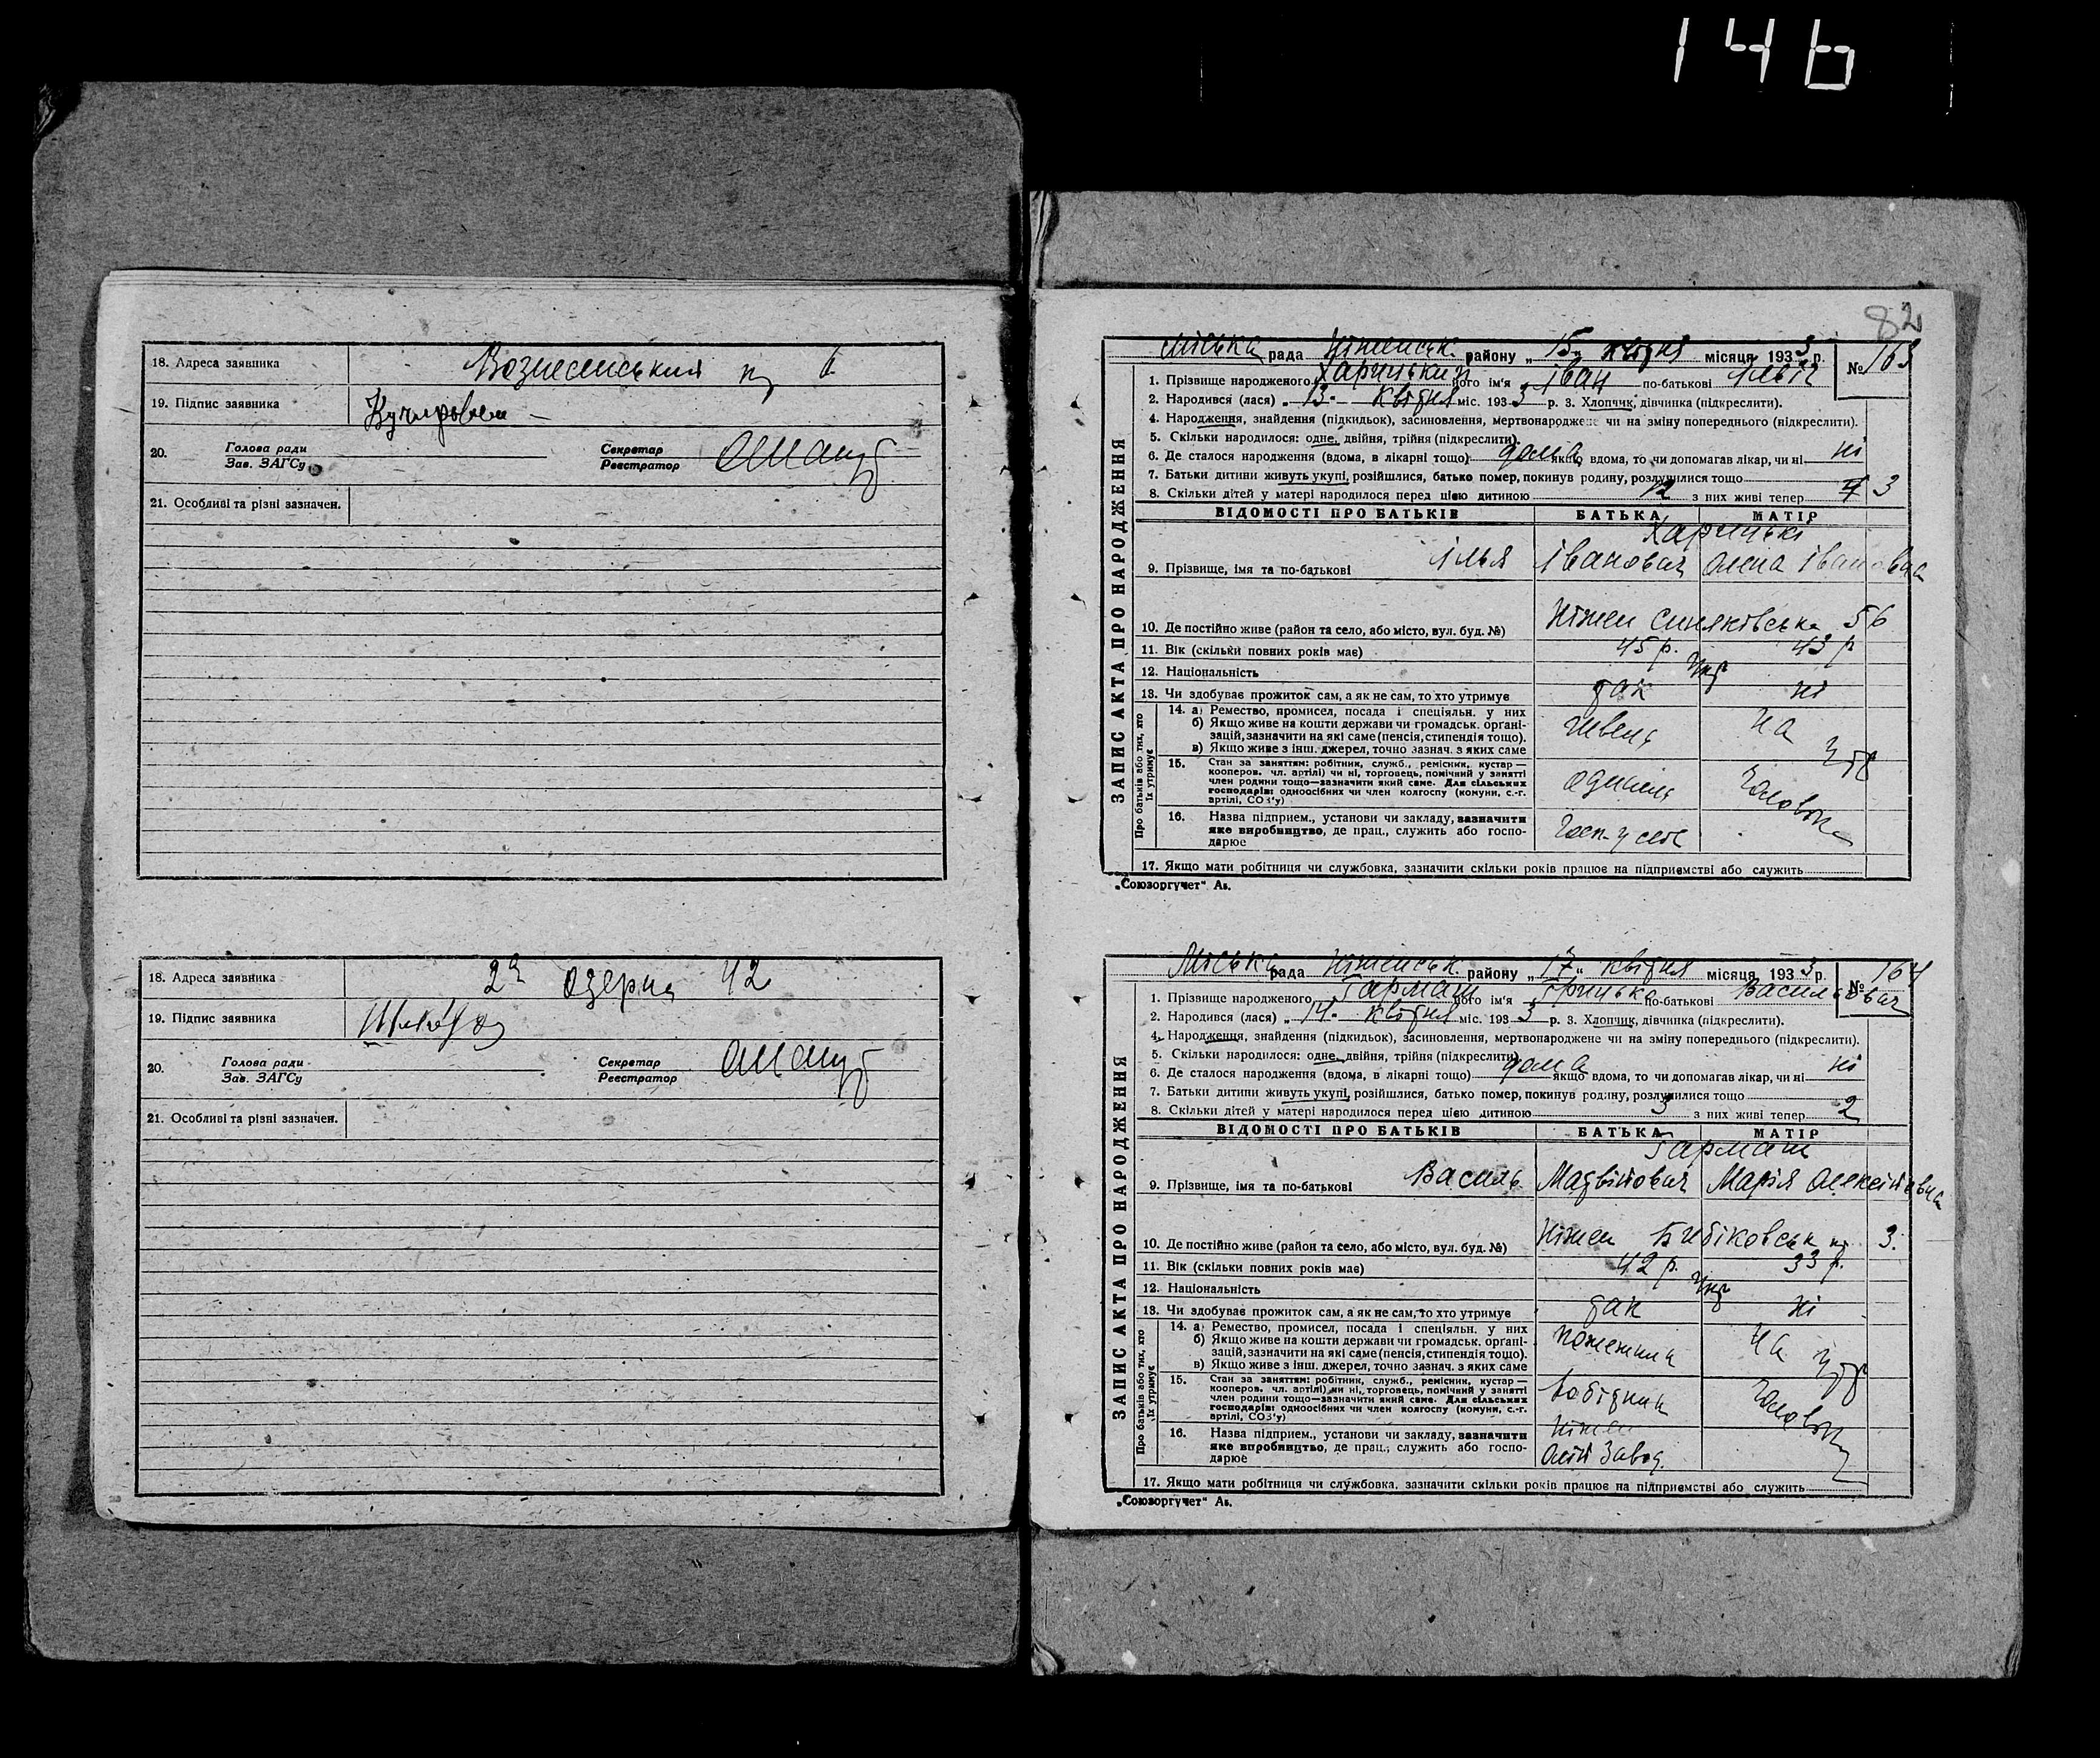 146
18. Адреса заявника Вознесенський 6
19. Підпис заявника
20. Голова ради
Зав. ЗАГСу
Секретар
Реєстратор
21. Особливі та різні зазначен.
18. Адреса заявника 2га Озерна 42
19. Підпис заявника
20. Голова ради
Зав. ЗАГСу
Секретар
Реєстратор
21. Особливі та різні зазначен.
82
Міська рада Ніженськ. району „15„ квітня місяця 1933 р.
№ 163
1. Прізвище народженого Харицький його ім'я Іван по-батькові Ільіч
2. Народився (лася) „13„ квітня міс. 1933 р. 3. Хлопчик, дівчинка (підкреслити).
4. Народження, знайдення (підкидьок), засиновлення, мертвонароджене чи на зміну попереднього (підкреслити).
5. Скільки народилося: одне, двійня, трійня (підкреслити).
6. Де сталося народження (вдома, в лікарні тощо) дома якщо вдома, то чи допомагав лікар, чи ні ні
7. Батьки дитини живуть укупі, розійшлися, батько помер, покинув родину, розлучилися тощо
8. Скільки дітей у матері народилося перед цією дитиною 12 з них живі тепер 3
ЗАПИС АКТА ПРО НАРОДЖЕННЯ
ВІДОМОСТІ ПРО БАТЬКІВ БАТЬКА МАТІР
Харицькі
9. Прізвище, імя та по-батькові Ілья Іванович Олена Івановна
10. Де постійно живе (район та село, або місто, вул. буд. №) Ніжен Синяківська 56
11. Вік (скільки повних років має) 45 р. 43 р
12. Національність Укр
13. Чи здобуває прожиток сам, а як не сам, то хто утримує так ні
Про батьків або тих, хто їх утримує
14. а) Ремество, промисел, посада і спеціяльн. у них
б) Якщо живе на кошти держави чи громадськ. органі-
зацій, зазначити на які саме (пенсія, стипендія тощо).
в) Якщо живе з інш. джерел, точно зазнач. з яких саме
швець на утр
15. Стан за заняттям: робітник, служб., ремісник, кустар—
кооперов. чл. артілі) чи ні, торговець, помічний у занятті
член родини тощо—зазначити який саме. Для сільських
господарів: одноосібних чи член колгоспу (комуни, с.-г.
артілі, СОЗ'у)
16. Назва підприєм., установи чи закладу, зазначити
яке виробництво, де прац., служить або госпо-
дарює
17. Якщо мати робітниця чи службовка, зазначити скільки років працює на підприємстві або служить
„Союзоргучет“ Ав.
Міська рада Ніженськ. району „17„ квітня місяця 1933 р.
№ 164
1. Прізвище народженого Гармаш його ім'я Грицько по-батькові Васильович
2. Народився (лася) „14„ квітня міс. 1933 р. 3. Хлопчик, дівчинка (підкреслити).
4. Народження, знайдення (підкидьок), засиновлення, мертвонароджене чи на зміну попереднього (підкреслити).
5. Скільки народилося: одне, двійня, трійня (підкреслити).
6. Де сталося народження (вдома, в лікарні тощо) дома якщо вдома, то чи допомагав лікар, чи ні ні
7. Батьки дитини живуть укупі, розійшлися, батько помер, покинув родину, розлучилися тощо
8. Скільки дітей у матері народилося перед цією дитиною 3 з них живі тепер 2
ЗАПИС АКТА ПРО НАРОДЖЕННЯ
ВІДОМОСТІ ПРО БАТЬКІВ БАТЬКА МАТІР
Гармаш
9. Прізвище, імя та по-батькові Василь Матвійович Марія Олексіївна
10. Де постійно живе (район та село, або місто, вул. буд. №) Ніжен Бибіковськ 3.
11. Вік (скільки повних років має) 42 р. 33 р.
12. Національність Укр
13. Чи здобуває прожиток сам, а як не сам, то хто утримує так ні
Про батьків або тих, хто їх утримує
14. а) Ремество, промисел, посада і спеціяльн. у них
б) Якщо живе на кошти держави чи громадськ. органі-
зацій, зазначити на які саме (пенсія, стипендія тощо).
в) Якщо живе з інш. джерел, точно зазнач. з яких саме
пожежник на утр
15. Стан за заняттям: робітник, служб., ремісник, кустар—
кооперов. чл. артілі) чи ні, торговець, помічний у занятті
член родини тощо—зазначити який саме. Для сільських
господарів: одноосібних чи член колгоспу (комуни, с.-г.
артілі, СОЗ'у)
робітник
16. Назва підприєм., установи чи закладу, зазначити
яке виробництво, де прац., служить або госпо-
дарює
Ніжен
Олій Завод.
17. Якщо мати робітниця чи службовка, зазначити скільки років працює на підприємстві або служить
„Союзоргучет“ Ав.